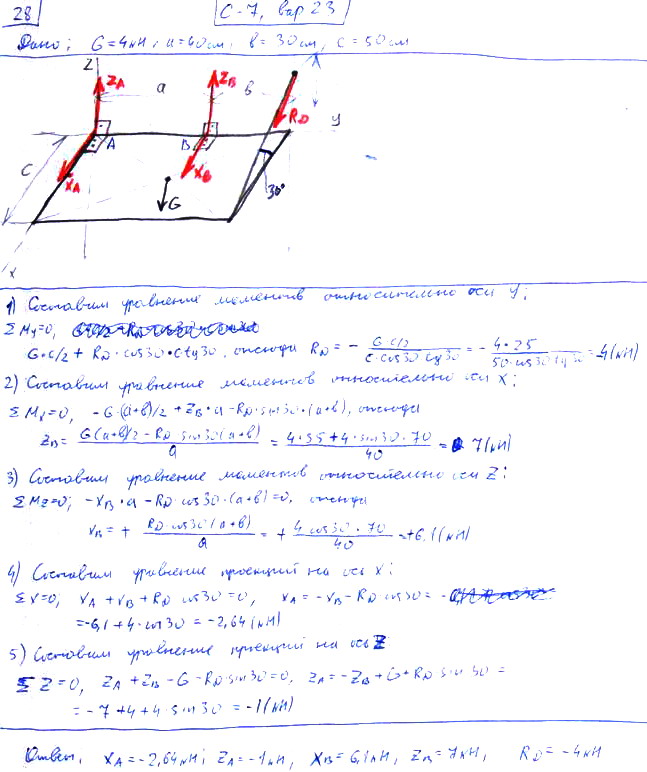 28
С-7, вар 23
Дано: G=4кН, a=40см, b=30см, c=50см
Z
ZA
a
ZB
b
RD
y
A
B
C
XA
XB
G
30°
x
1) Составим уравнение моментов относительно оси y:
ΣMy=0,
G·c/2 + RD·cos30·c tg30, откуда RD = - G·c/2 / c·cos30 tg30 = - 4·25 / 50·cos30 tg30 = -4(кН)
2) Составим уравнение моментов относительно оси X:
ΣMx=0, -G·(a+b)/2 + ZB·a - RD·sin30·(a+b), откуда
ZB = G(a+b)/2 - RD sin30(a+b) / a = 4·35+4·sin30·70 / 40 = 7(кН)
3) Составим уравнение моментов относительно оси Z:
ΣMz=0; -XB·a - RD·cos30·(a+b)=0, откуда
XB = + RD·cos30(a+b) / a = + 4cos30·70 / 40 = +6,1(кН)
4) Составим уравнение проекций на ось X:
ΣX=0; XA + XB + RD cos30=0, XA = -XB - RD·cos30 = -
= -6,1+4·cos30 = -2,64(кН)
5) Составим уравнение проекций на ось Z
ΣZ=0, ZA + ZB - G - RD·sin30=0, ZA = -ZB + G + RD sin30 =
= -7+4+4·sin30 = -1(кН)
Ответ: XA=-2,64кН; ZA=-1кН, XB=6,1кН, ZB=7кН, RD=-4кН